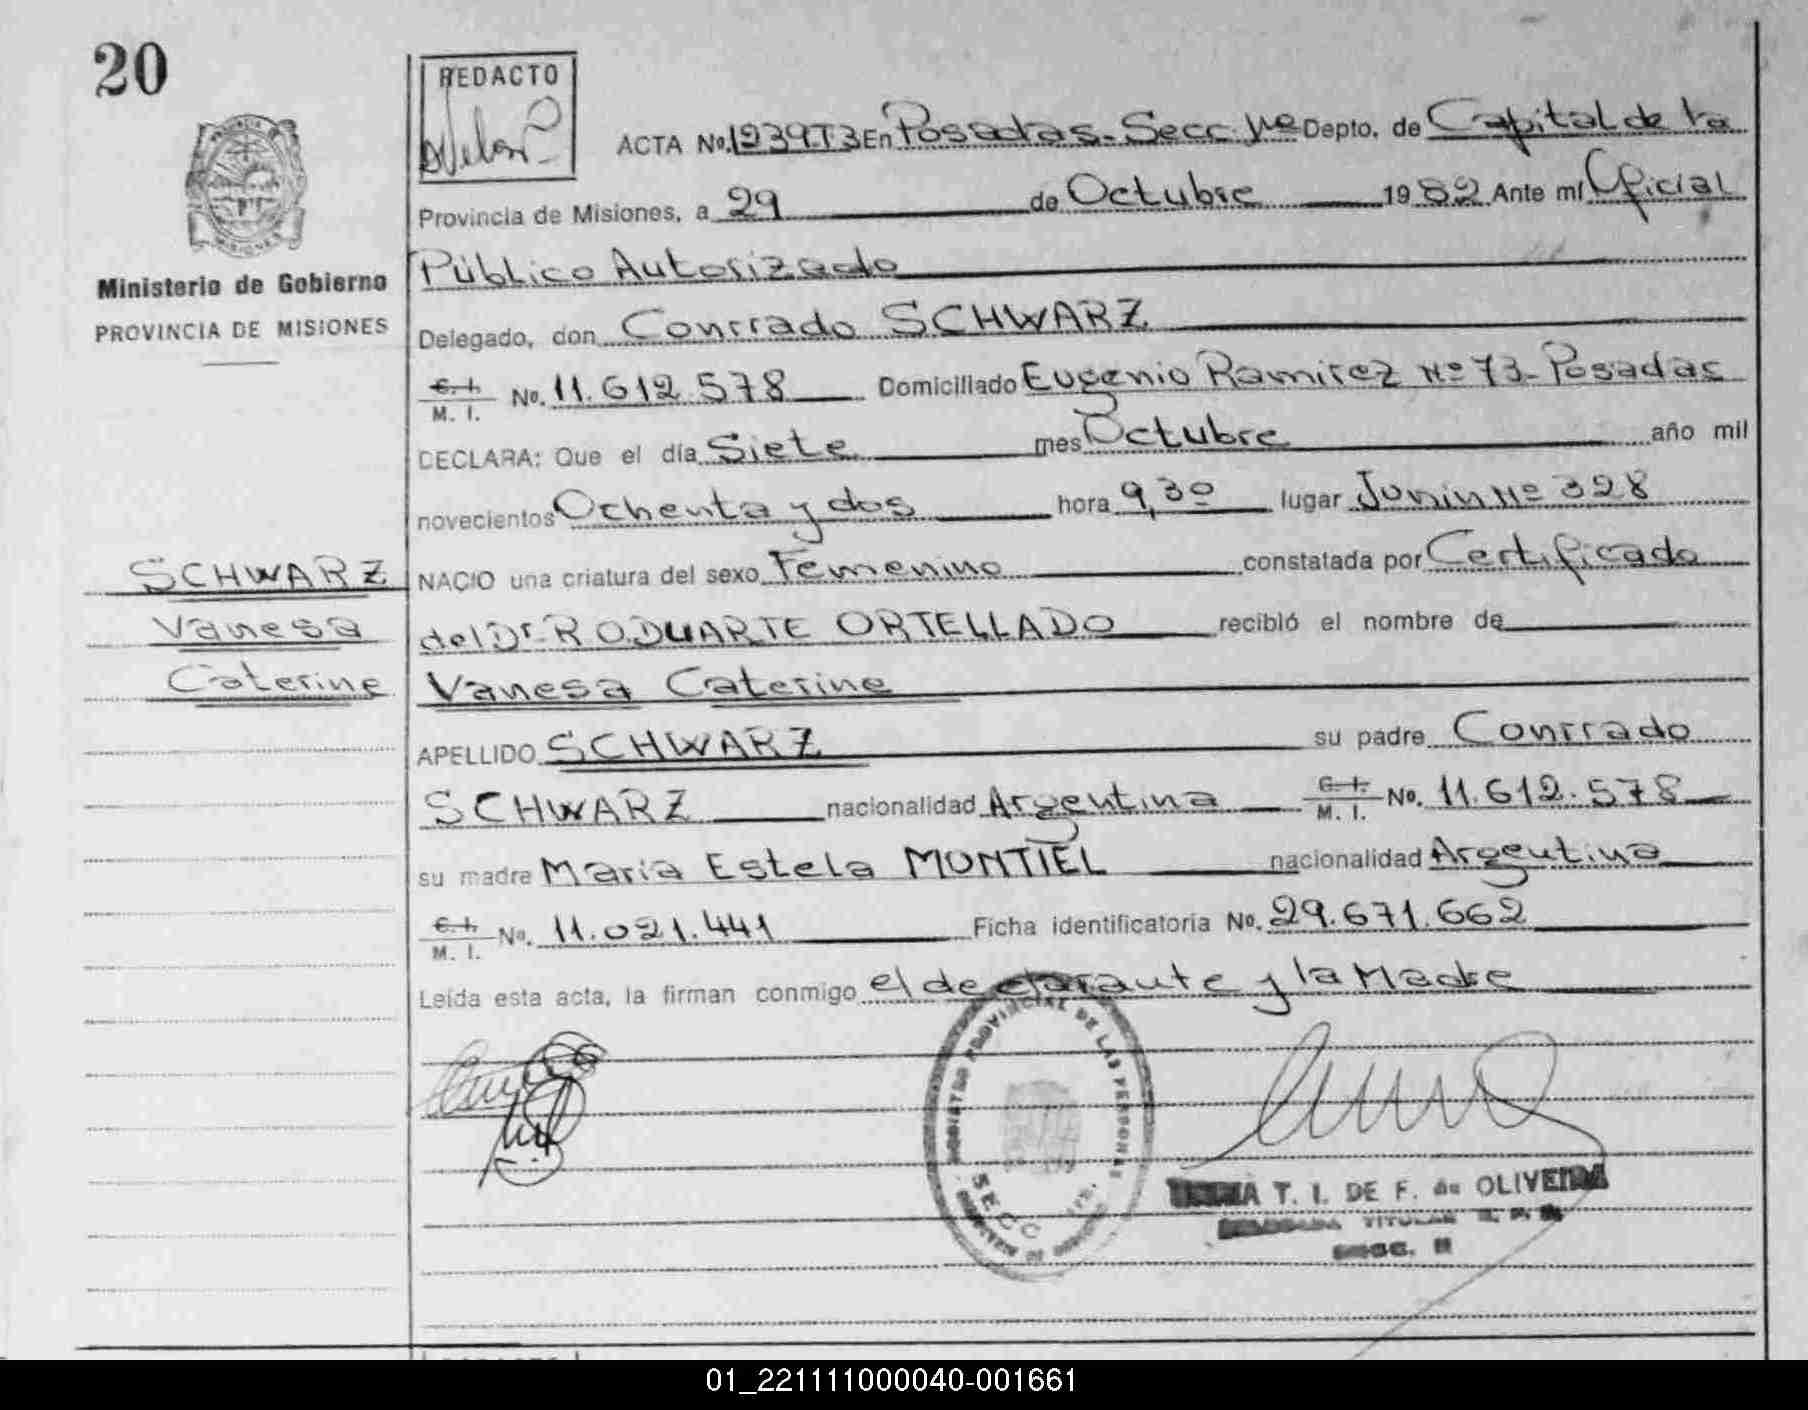 20
REDACTO
ACTA No. 1239T3 En Posadas-Secc. 1ra Depto. de Capital de la
Provincia de Misiones, a 29 de Octubre 1982 Ante mí Oficial
Público Autorizado
Ministerio de Gobierno
PROVINCIA DE MISIONES
Delegado, don Conrrado SCHWARZ
C. I. M. I. No. 11.612.578 Domiciliado Eugenio Ramirez Nº 73-Posadas
DECLARA: Que el día Siete mes Octubre año mil
novecientos Ochenta y dos hora 9,30 lugar Junin Nº 328
SCHWARZ
NACIO una criatura del sexo Femenino constatada por Certificado
Vanesa
del Dr. R O. DUARTE ORTELLADO recibió el nombre de
Caterine
Vanesa Caterine
APELLIDO SCHWARZ su padre Conrrado
SCHWARZ nacionalidad Argentina C. I. M. I. No. 11.612.578
su madre Maria Estela MONTIEL nacionalidad Argentina
C. I. M. I. No. 11.021.441 Ficha identificatoria No. 29.671.662
Leída esta acta, la firman conmigo el declarante y la Madre
REGISTRO PROVINCIAL DE LAS PERSONAS
SECC
T. I. DE F. de OLIVEIRA
DELEGADA TITULAR R. P. P.
SECC.
01_221111000040-001661